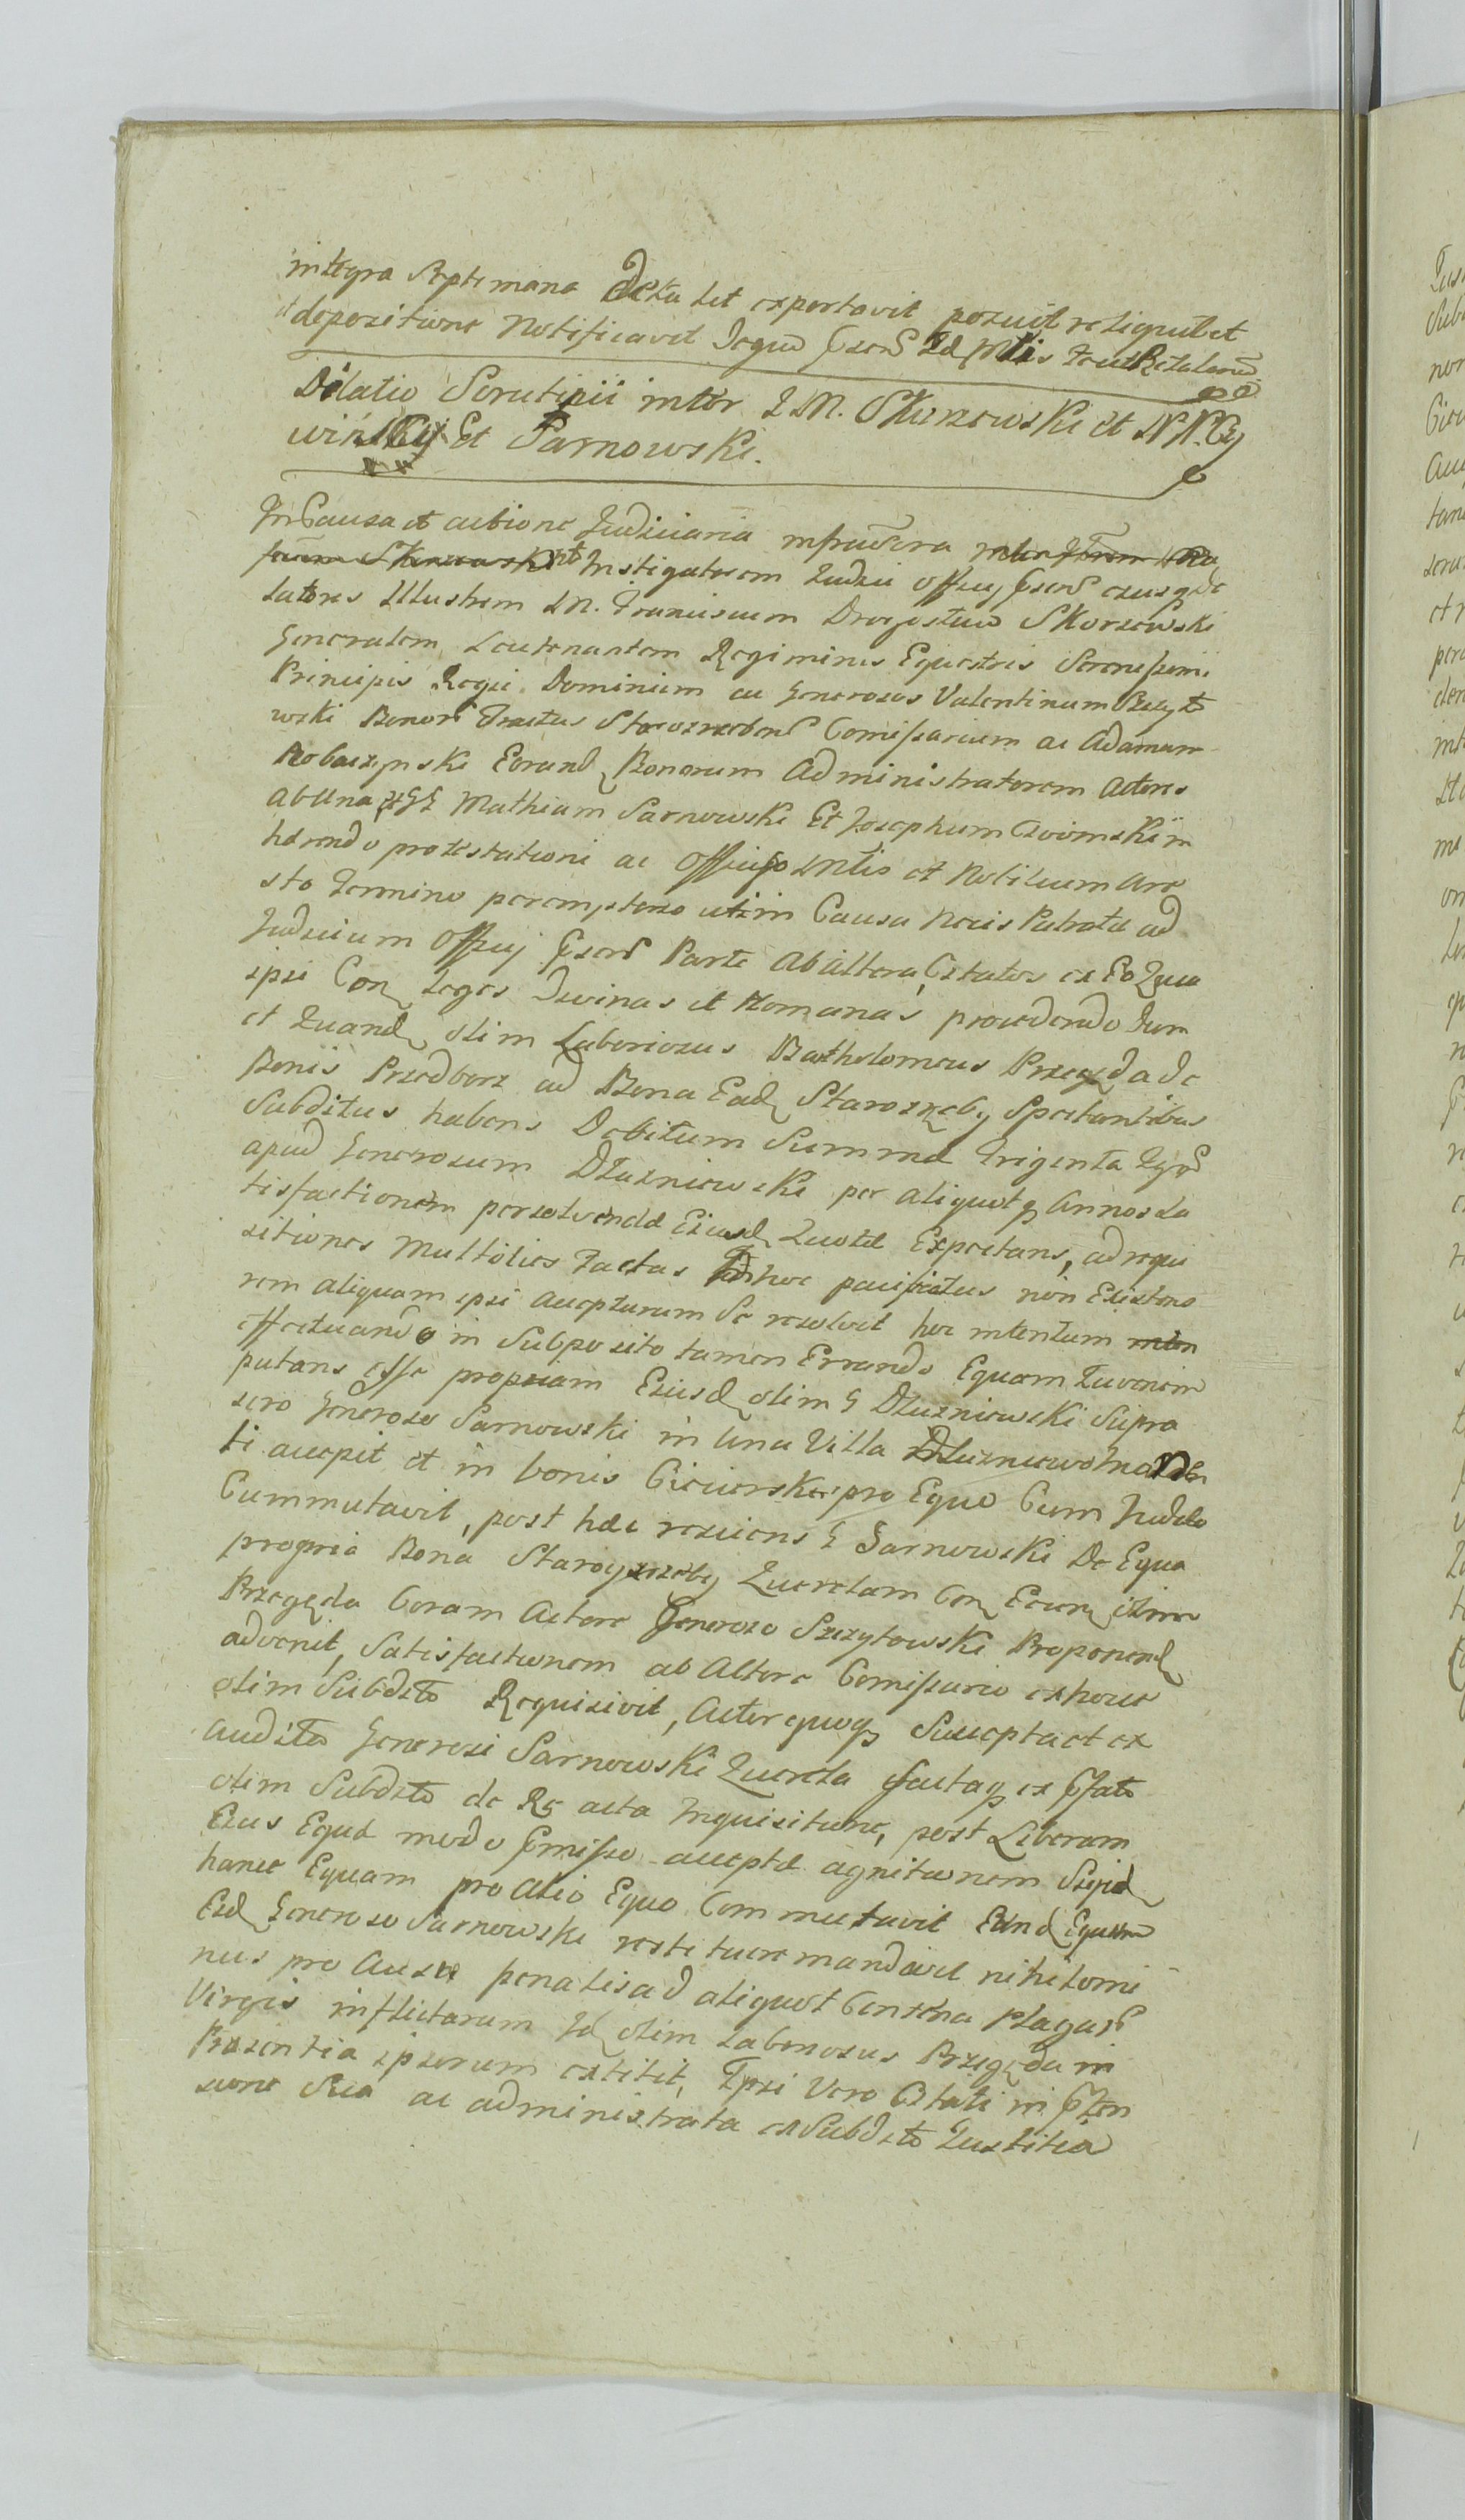 integra Septimana detulit exportavit posuit reliquit et
depositione notificavit
Dilatio Scrutinii inter I. M. Skurzewski et N. N. Cy
wiński Et Sarnowski.
In Causa et actione Judiciaria infrascripta
Instigatorem Judicii Officii
latores Illustrem I. M. Franciscum Drogosław Skorzewski
Generalem Leutenantem Regiminis Equestris Serenissimi
Principis Regii Dominium ac Generosos Valentinum Szczyto
wski Bonorũ Comissarium ac Adamum
Robaczynski Eorund Bonorum Administratorem Actores
Ab Una et GG Mathiam Sarnowski Et Josephum
hærendo protestationi ac et Nobilium Are
sto termino peremptorio uti in Causa Necis Patratæ ad
Judicium Officii Parte Ab altera Citatos ex Eo Quia
ipsi Con Leges Divinas et Humanas procedendo dum
et Quand olim Laboriosus Bartholomeus Przegęda de
Bonis Przedborz ad Bona Ead Starozreby Spectantibus
Subditus habens Debitum Summæ Triginta
apud Generosum Dłuzniewski per aliquotq Annos Sa
tisfactionem persolvendæ Eiusd Quotæ Expectans, ad requi
sitiones Multoties factas adhuc pacificatus non Existens
rem aliquam ipsi Accepturum Se resolvit hoc intentum
effectuando in Supposito tamen Errando Equam Juvenem
putans esse propriam Eiusd olim G Dłuzniewski Supra
sero Generoso Sarnowski in Una Villa Dłuzniewo
ti accepit et in bonis pro Equo Cum Judæo
Commutavit, post hæc resciens G Sarnowski De Equa
propria Bona Starozreby Querelam Con Eum olim
Przegęda Coram Actore Generoso Szczytowski Proponend
advenit, Satisfactionem ab Actore Comissario ex hocce
olim Subdito Requisivit, Actor quoq Suscepta et ex
audita Generosi Sarnowski Querela factaq ex Pfato
olim Subdito de Re acta Inquisitione, post Liberam
Eius Equæ modo pmisso acceptæ agnitionem Siquid
hance Equam pro Alio Equo Commutavit Eand Equam
Eid Generoso Sarnowski restituere mandavit nihilomi
nus pro Ausu penalis ad aliquot Centena Plagarũ
Virgis inflictarum Id olim Laboriosus Przegęda in
Præsentia ipsorum extitit, Ipsi Vero Citati in
sione Sua ac administrata ex Subdito Justitia